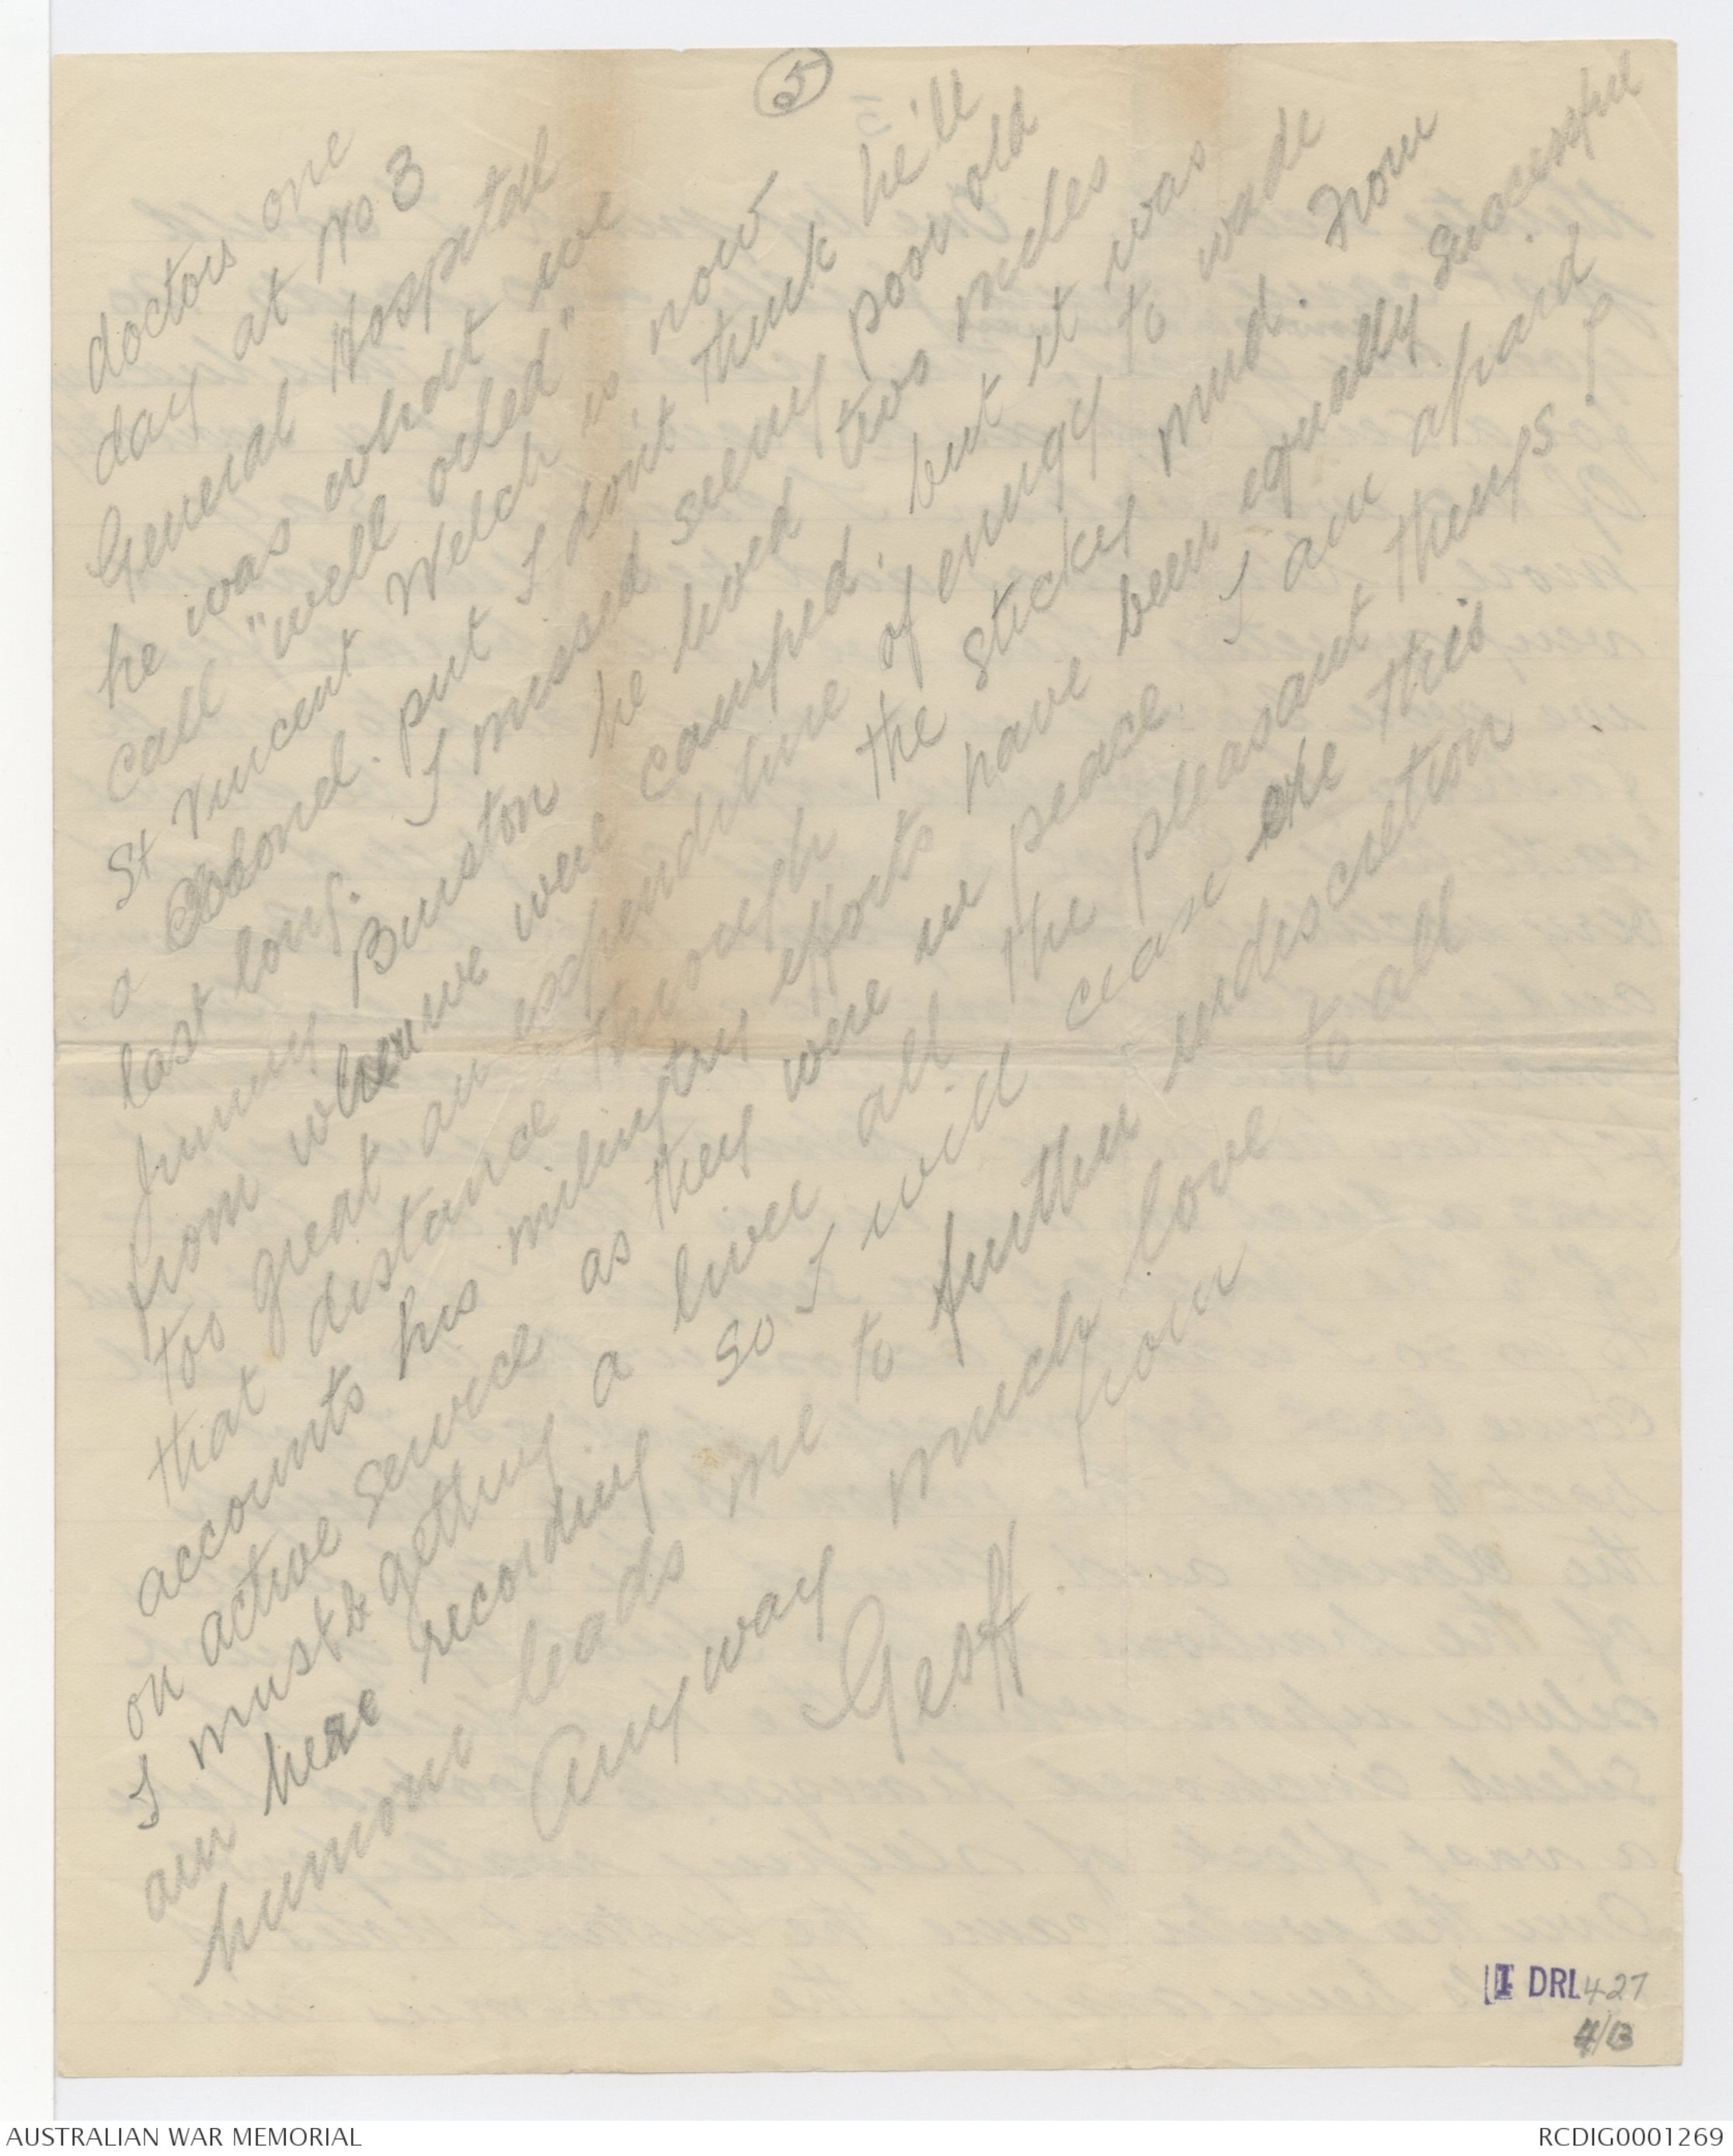 5
doctors one
day at No 3
General Hospital
he was what we
call "well oiled"
St Vincent Welch is now
a Colonel. put I don't think he'll
last long.
I missed seeing poor old
Jimmy Burston he lived two miles
from where we were camped. but it was
too great an expenditure of energy to wade
that distance through the sticky mud. From
accounts his military efforts have been equally successful
on active service as they were in peace. I am afraid
I must be getting a liver all the pleasant things I
am here recording so I will cease ere this
humour leads me to further indiscretion
Anyway much love to all
from
Geoff
1 DRL 427
4/13
AUSTRALIAN WAR MEMORIAL
RCDIG0001269